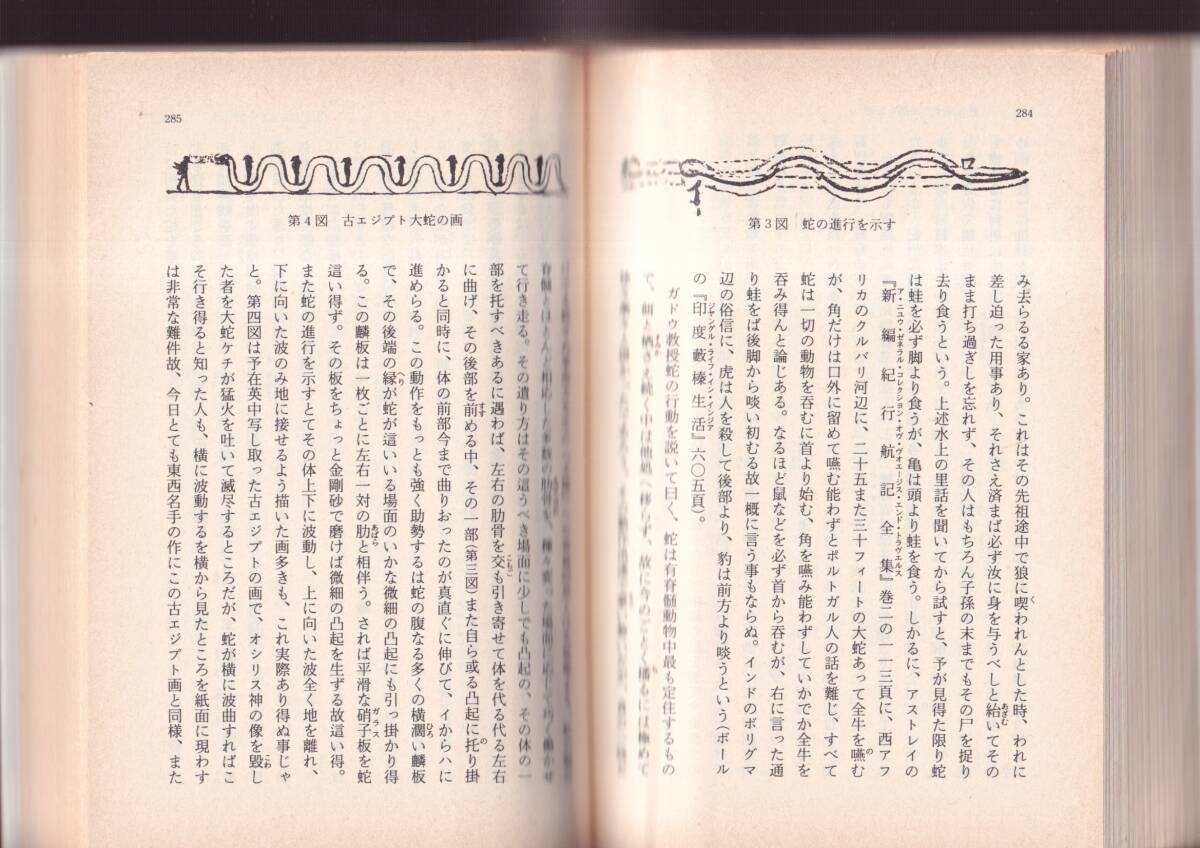 284
第3図 蛇の進行を示す
み去らるる家あり。これはその先祖途中で狼に喫われんとした時、われに
差し迫った用事あり、それさえ済まば必ず汝に身を与うべしと紿いてその
まま打ち過ぎしを忘れず、その人はもちろん子孫の末までもその尸を捉り
去り食うという。上述水上の里話を聞いてから試すと、予が見得た限り蛇
は蛙を必ず脚より食うが、亀は頭より蛙を食う。しかるに、アストレイの
『新編紀行航記全集』巻二の一一三頁に、西アフ
リカのクルバリ河辺に、二十五また三十フィートの大蛇あって全牛を嚥む
が、角だけは口外に留めて嚥む能わずとポルトガル人の話を難じ、すべて
蛇は一切の動物を呑むに首より始む、角を嚥み能わずしていかでか全牛を
呑み得んと論じある。なるほど鼠などを必ず首から呑むが、右に言った通
り蛙をば後脚から啖い初むる故一概に言う事もならぬ。インドのボリグマ
辺の俗信に、虎は人を殺して後部より、豹は前方より啖うという(ボール
の『印度藪榛生活』六〇五頁)。
ガドウ教授蛇の行動を説いて曰く、蛇は有脊髄動物中最も定住するもの
で、餌と栖さえ続く中は他処へ移らず、故に今のごとく播るには極めて
285
第4図 古エジプト大蛇の画
脊髄とほとんど相応した多数の肋骨を、種々変った場面に応じて巧く働かせ
て行き走る。その遣り方はその這うべき場面に少しでも凸起の、その体の一
部を托すべきあるに遇わば、左右の肋骨を交も引き寄せて体を代る代る左右
に曲げ、その後部を前める中、その一部(第三図)また自ら或る凸起に托り掛
かると同時に、体の前部今まで曲りおったのが真直ぐに伸びて、イからハに
進めらる。この動作をもっとも強く助勢するは蛇の腹なる多くの横濶い麟板
で、その後端の縁が蛇が這いいる場面のいかな微細の凸起にも引っ掛かり得
る。この麟板は一枚ごとに左右一対の肋と相伴う。されば平滑な硝子板を蛇
這い得ず。その板をちょっと金剛砂で磨けば微細の凸起を生ずる故這い得。
また蛇の進行を示すとてその体上下に波動し、上に向いた波全く地を離れ、
下に向いた波のみ地に接せるよう描いた画多きも、これ実際あり得ぬ事じゃ
と。第四図は予在英中写し取った古エジプトの画で、オシリス神の像を毀し
た者を大蛇ケチが猛火を吐いて滅尽するところだが、蛇が横に波曲すればこ
そ行き得ると知った人も、横に波動するを横から見たところを紙面に現わす
は非常な難件故、今日とても東西名手の作にこの古エジプト画と同様、また